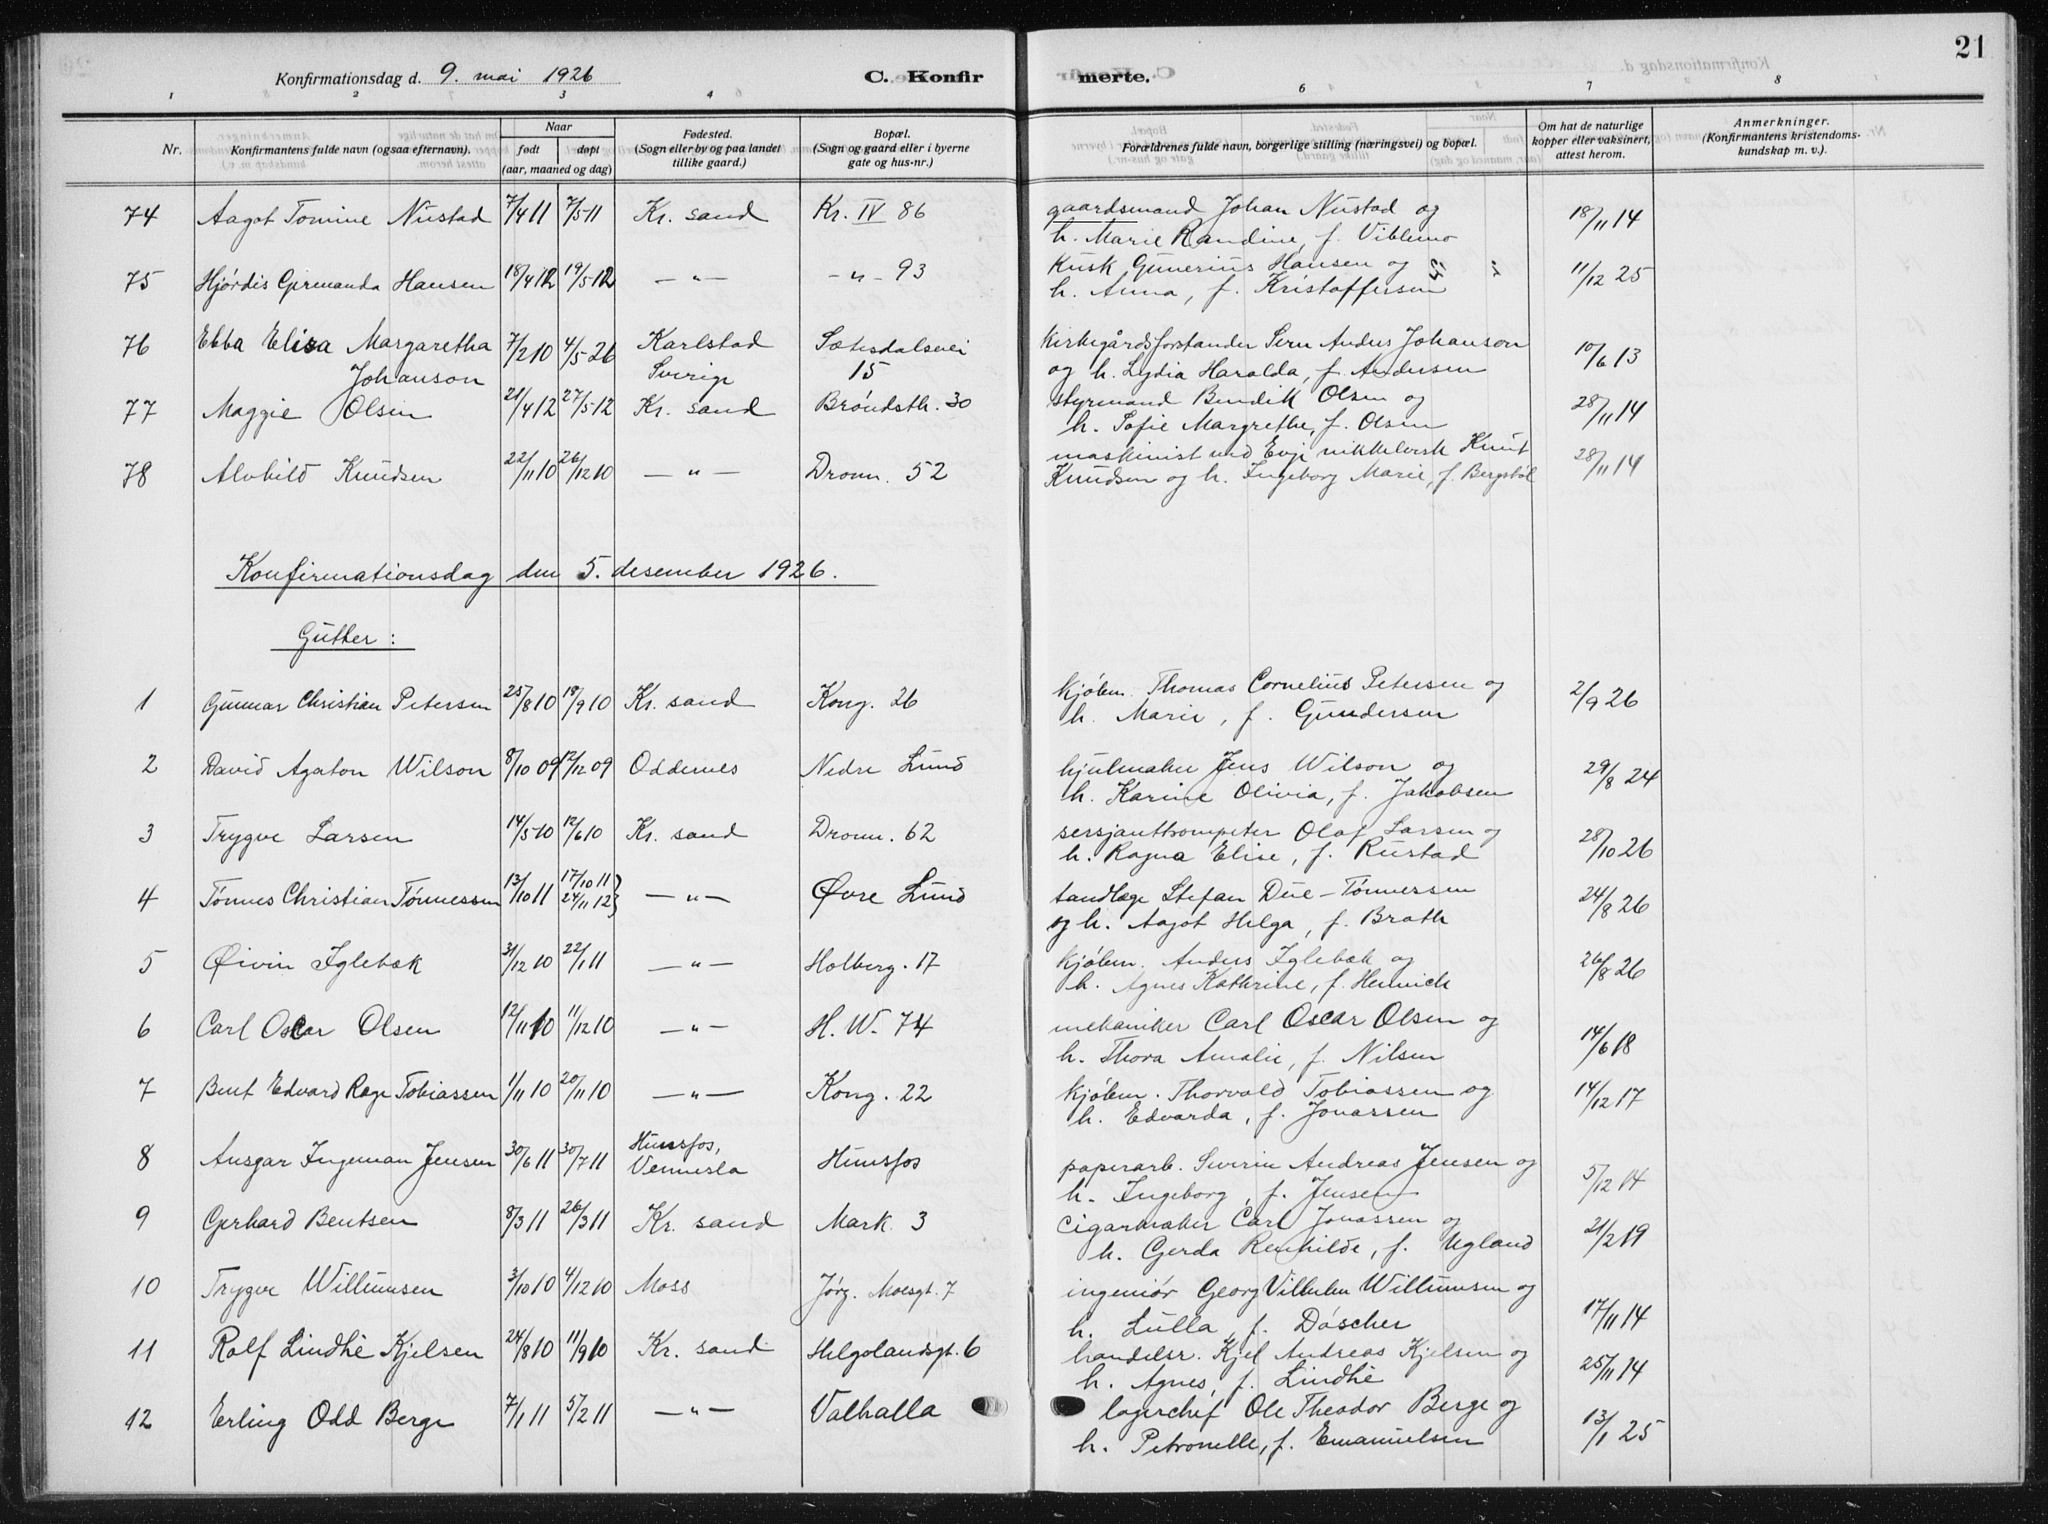 21
Konfirmationsdag d. 9. mai 1926 C. Konfirmerte.
1 2 3 4 6 7 8
Nr. Konfirmantens fulde navn (ogsaa efternavn). Naar født døpt (aar, maaned og dag) Fødested. (Sogn eller by og paa landet tillike gaard.) Bopæl. (Sogn og gaard eller i byerne gate og hus-nr.) Forældrenes fulde navn, borgerlige stilling (næringsvei) og bopæl. Om hat de naturlige kopper eller vaksinert, attest herom. Anmerkninger. (Konfirmantens kristendomskundskap m. v.).
74 Aagot Tomine Nustad 7/4 11 7/5 11 Kr. sand Kr. IV 86 gaardsmand Johan Nustad og 18/11 14
h. Marie Randine, f. Viblemo
75 Hjørdis Germanda Hansen 18/4 12 19/5 12 — " — - " - 93 Kusk Gunerius Hansen og 11/12 25
h. Anna, f. Kristoffersen
76 Ebba Elisa Margaretha 7/2 10 4/5 26 Karlstad Sætesdalsvei Kirkegårdsforstander Sern Anders Johanson 10/6 13
Johanson Sverige 15 og h. Lydia Haralda, f. Andersen
77 Maggie Olsen 21/4 12 27/5 12 Kr. sand Brøndsth. 30 styrmand Bendik Olsen og 28/11 14
h. Sofie Margrethe, f. Olsen
78 Alvhild Knudsen 22/11 10 26/12 10 — " — Dronn. 52 maskinist ved Evje nikkelverk Knut 28/11 14
Knudsen og h. Ingeborg Marie, f. Bergstøl
Konfirmationsdag den 5. desember 1926.
Gutter:
1 Gunnar Christian Petersen 25/8 10 18/9 10 Kr. sand Kong. 26 kjøbm. Thomas Cornelius Petersen og 2/9 26
h. Marie, f. Gundersen
2 David Agaton Wilson 8/10 09 12/12 09 Oddernes Nedre Lund hjulmaker Jens Wilson og 29/8 24
h. Karine Olivia, f. Jakobsen
3 Trygve Larsen 14/5 10 12/6 10 Kr. sand Dronn. 62 sersjanttrompeter Olaf Larsen og 28/10 26
h. Ragna Elise, f. Rustad
4 Tønnes Christian Tønnessen 13/10 11 17/10 11 24/11 12} — " — Øvre Lund tandlæge Stefan Due-Tønnessen 24/8 26
og h. Aagot Helga, f. Brath
5 Øivin Iglebæk 31/12 10 22/1 11 — " — Holberg. 17 kjøbm. Anders Iglebæk og 26/8 26
h. Agnes Kathrine, f. Heinrich
6 Carl Oscar Olsen 12/11 10 11/12 10 — " — H. W. 74 mekaniker Carl Oscar Olsen og 14/6 18
h. Thora Amalie, f. Nilsen
7 Bent Edvard Rage Tobiassen 1/11 10 20/11 10 — " — Kong. 22 kjøbm. Thorvald Tobiassen og 14/12 17
h. Edvarda, f. Jonassen
8 Ansgar Ingeman Jensen 30/6 11 30/7 11 Hunsfos, Vennesla Hunsfos papirarb. Severin Andreas Jensen og 5/12 14
h. Ingeborg, f. Jensen
9 Gerhard Bentsen 8/3 11 26/3 11 Kr. sand Mark. 3 cigarmaker Carl Jonassen og 21/2 19
h. Gerda Renhilde, f. Ugland
10 Trygve Willumsen 3/10 10 4/12 10 Moss Jørg. Moesgt. 7 ingeniør Georg Vilhelm Willumsen og 17/11 14
h. Lulla, f. Døscher
11 Rolf Lindhé Kjelsen 24/8 10 11/9 10 Kr. sand Helgolandsgt. 6 handelsr. Kjel Andreas Kjelsen og 25/11 14
h. Agnes, f. Lindhé
12 Erling Odd Berge 7/1 11 5/2 11 — " — Valhalla lagerchef Ole Theodor Berge og 13/1 25
h. Petronelle, f. Emanuelsen